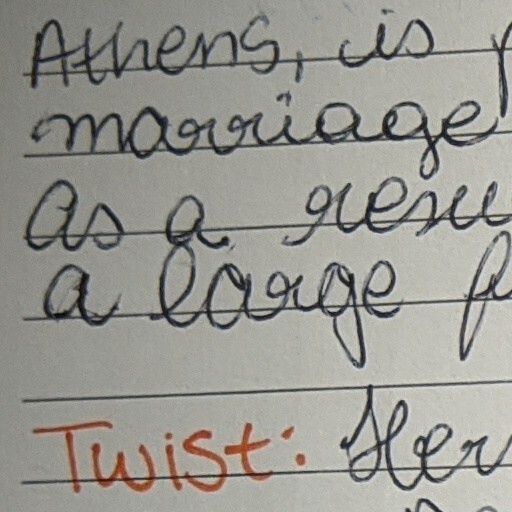 Athens, is
marriage
as a resu
a large
Twist: Her